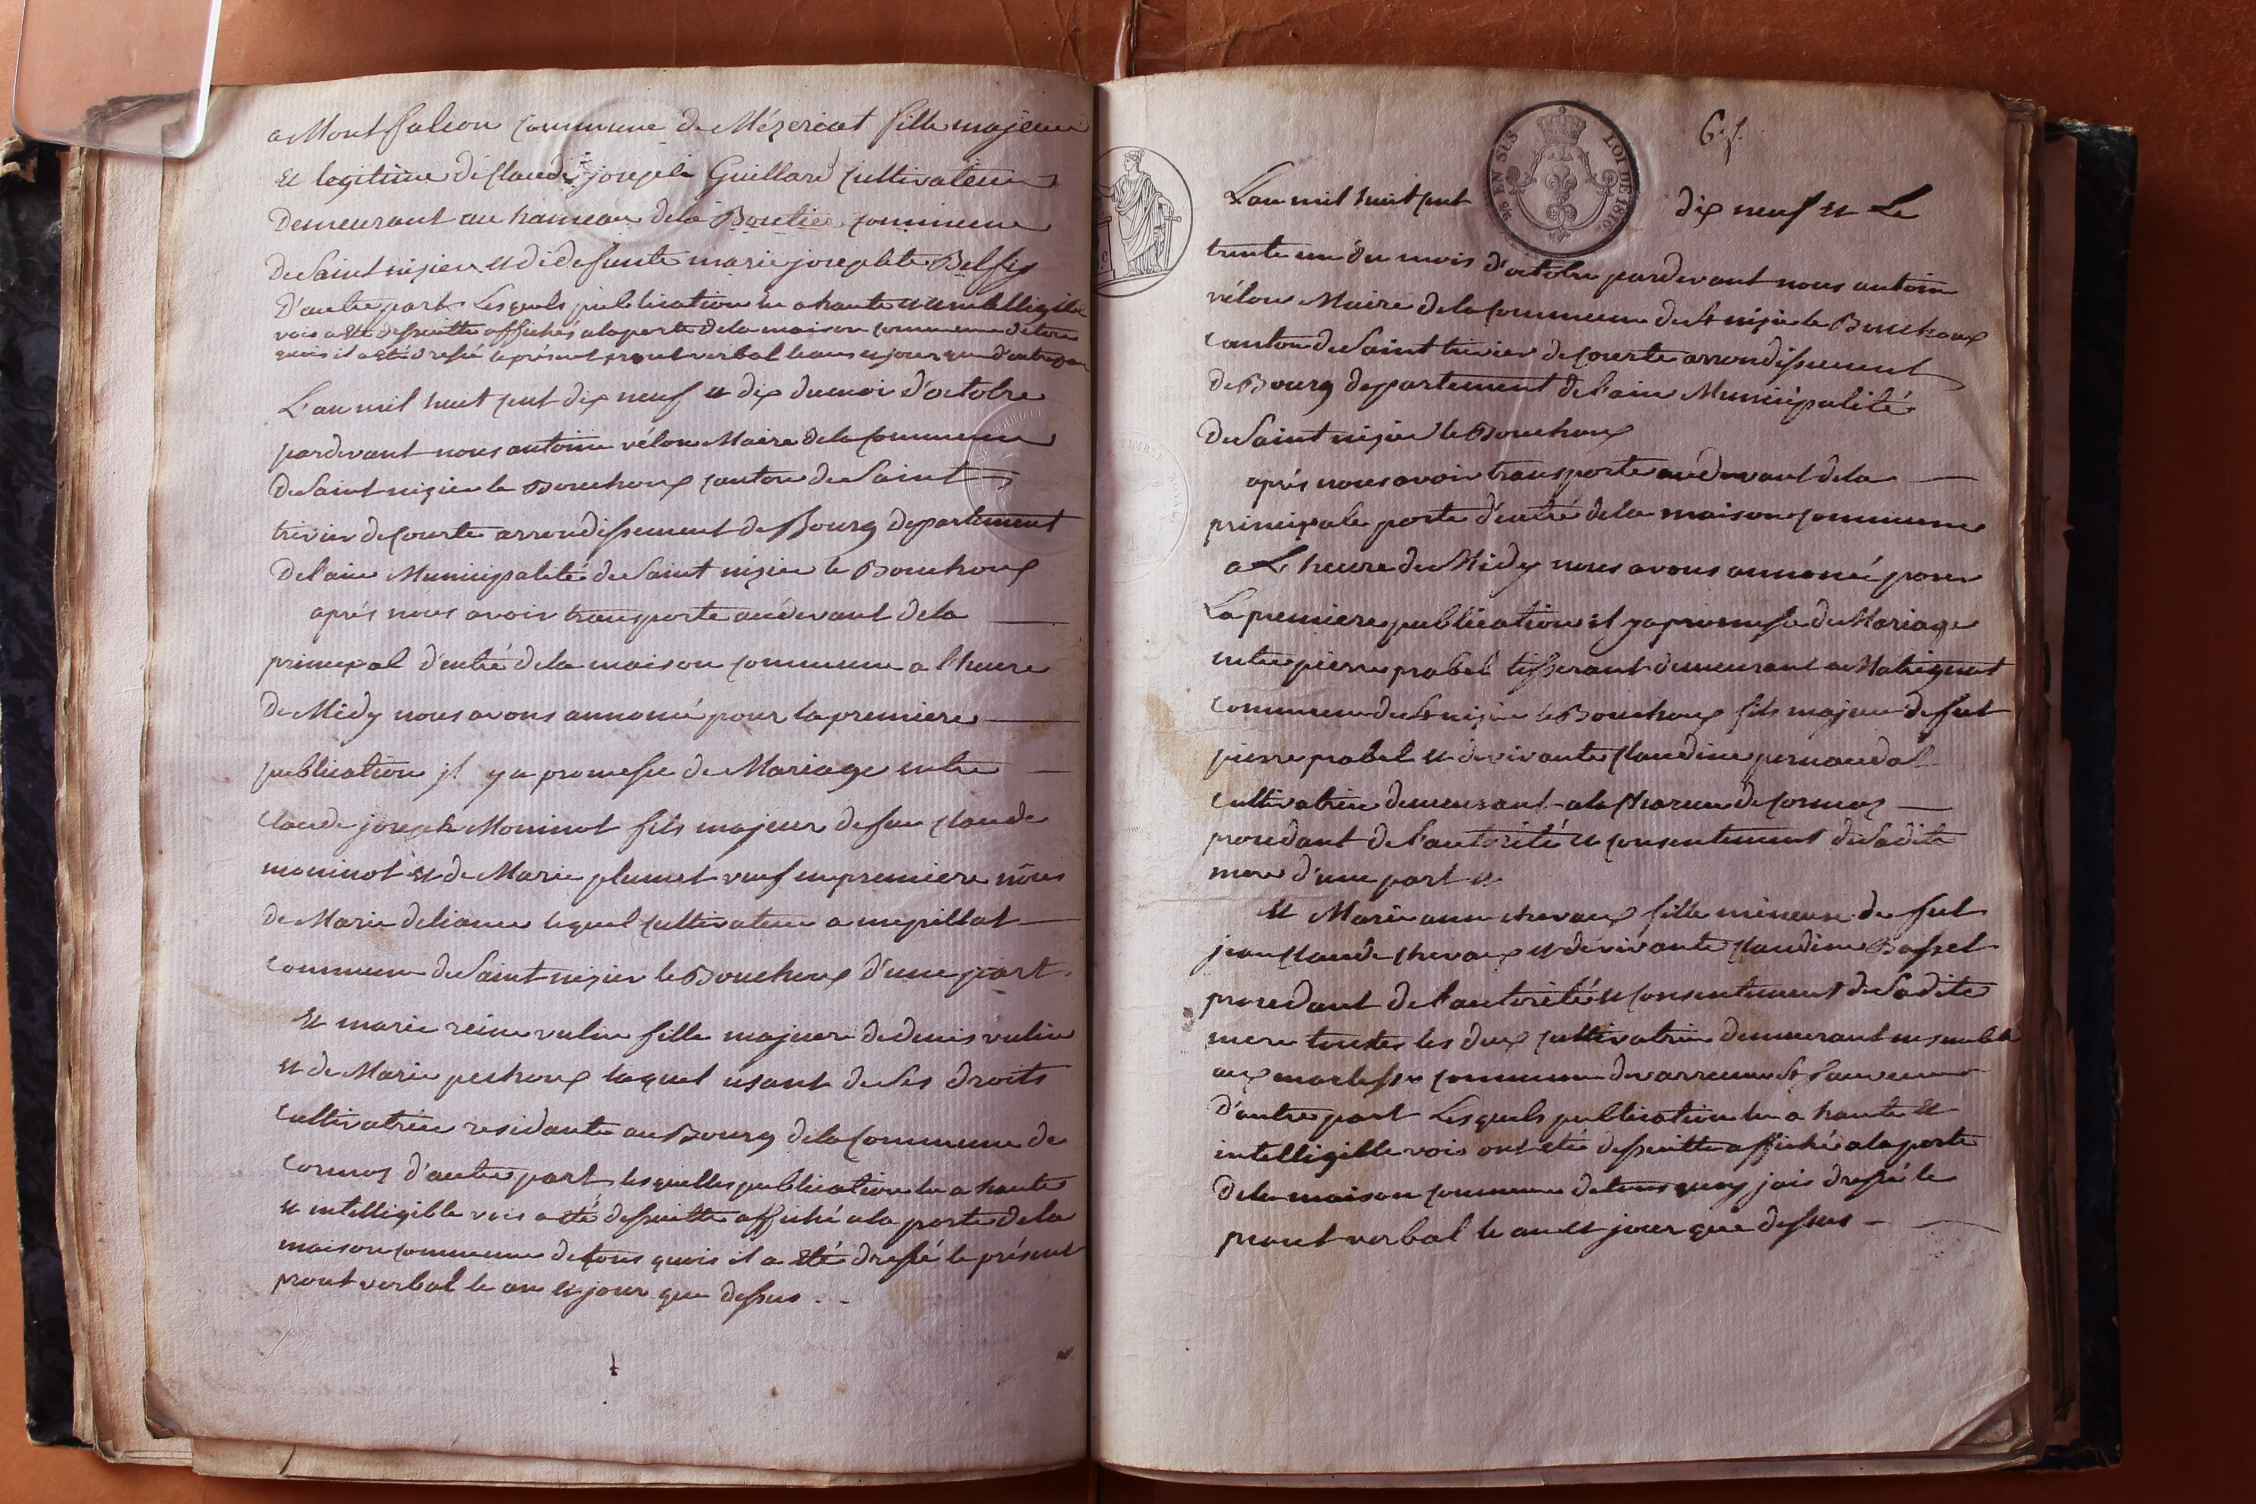 a Montfalcon commune de Mézeriat fille majeure
et legitime de Claude joseph Guillard Cultivateur
demeurant au hameau de la Boulie commune
de Saint nizier et de defunte marie josephte Belfis
d'autre part Lesquels publication lu a haute et intelligible
vois a eté dessuitte affiché a la porte de la maison commune de tous
quois il a eté dressé le présent prout verbal le an et jour que d'autre par
L'an mil huit cent dix neuf et dix du moi d'octobre
pardevant nous antoine vélon Maire de la Commune
de Saint nizier le Bouchoux canton de Saint
trivier de Courte arrondissement de Bourg departement
de l'ain Municipalité de Saint nizier le Bouchoux
aprés nous avoir transporte au devant de la
principal d'entré de la maison commune a l'heure
de Midy nous avons annoncé pour la premiere
publication jl y a promesse de Mariage entre
Claude joseph Moninot fils majeur de feu Claude
moninot et de Marie plumet veuf en premiere nôces
de Marie deliance lequel Cultivateur a mepillat
commune de Saint nizier le Bouchoux d'une part.
Et marie reine vulin fille majeure de denis vulin
et de Marie pechoux laquel usant de Ses droits
Cultivatrice residante au Bourg de la Commune de
Cormoz d'autre part lesquelles publication lu a haute
et intelligible vois a eté dessuitte affiché a la porte de la
maison commune de tous quois il a eté dressé le présent
prout verbal le an et jour que dessus
95 EN SUS LOI DE 1816
L'an mil huit cent dix neuf et Le
trente un du mois d'octobre pardevant nous antoin
vélon Maire de la Commune de St nizier le Bouchoux
canton de Saint trivier de Courte arrondissement
de Bourg departement de l'ain Municipalité
de Saint nizier le Bouchoux
aprés nous avoir transporte au devant de la
principale porte d'entré de la maison commune
a L'heure de Midy nous avons annoncé pour
La premiere publication il y a promesse de Mariage
entre pierre prabel tisserant demeurant a Matrignat
commune de St nizier le Bouchoux fils majeur de fut
pierre prabel et de vivante Claudine pernaudat
Cultivatrice demeurant a la Charme de Cormoz
procedant de l'autorité et consentement de Sadite
mere d'une part et
Et Marie anne chevaux fille mineure de fut
jean Claude chevaux et de vivante Claudine Basset
procedant de l'autorité et consentement de Sadite
mere toutes les deux Cultivatrice demeurant ensemble
aux commune de varenne St Sauveur
d'autre part Lesquels publication lu a haute et
intelligible vois ont eté dessuitte affiché a la porte
de la maison commune de tous quoy jais dressé le
prout verbal le an et jour que dessus